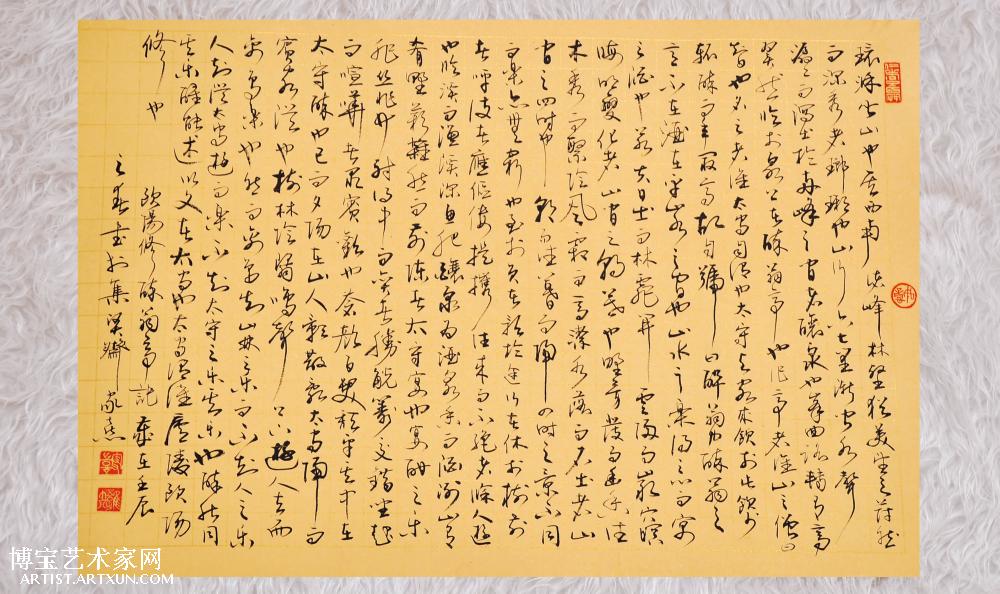 環滁皆山也其西南諸峰林壑猶美望之蔚然
而深秀者瑯琊也山行六七里漸聞水聲
潺潺而瀉出於兩峰之間者釀泉也峰回路轉有亭
翼然臨於泉上者醉翁亭也作亭者誰山之僧曰
智也名之者誰太守自謂也太守與客來飲於此飲少
輒醉而年最高故自號曰醉翁也醉翁之
意不在酒在乎山水之間也山水之樂得之心而寓
之酒也若夫日出而林霏開雲歸而巖穴暝
晦明變化者山間之朝暮也野芳發而幽香佳
木秀而繁陰風霜高潔水落而石出者山
間之四時也朝而往暮而歸四時之景不同
而樂亦無窮也至於負者歌於途行者休於樹前
者呼後者應傴僂提攜往來而不絕者滁人遊
也臨溪而漁溪深魚肥釀泉為酒泉香而酒洌山
肴野蔌雜然而前陳者太守宴也宴酣之樂
非絲非竹射者中而弈者勝觥籌交錯坐起
而喧嘩者眾賓歡也蒼顏白髮頹乎其中者
太守醉也已而夕陽在山人影散亂太守歸而
賓客從也樹林陰翳鳴聲上下遊人去而
禽鳥樂也然而禽鳥知山林之樂而不知人之樂
人知從太守遊而樂不知太守之樂其樂也醉能同
其樂醒能述以文者太守也太守謂誰廬陵歐陽
修也
歐陽修醉翁亭記歲在壬辰
之春書於集賢齋家熹
博宝艺术家网
ARTIST.ARTXUN.COM